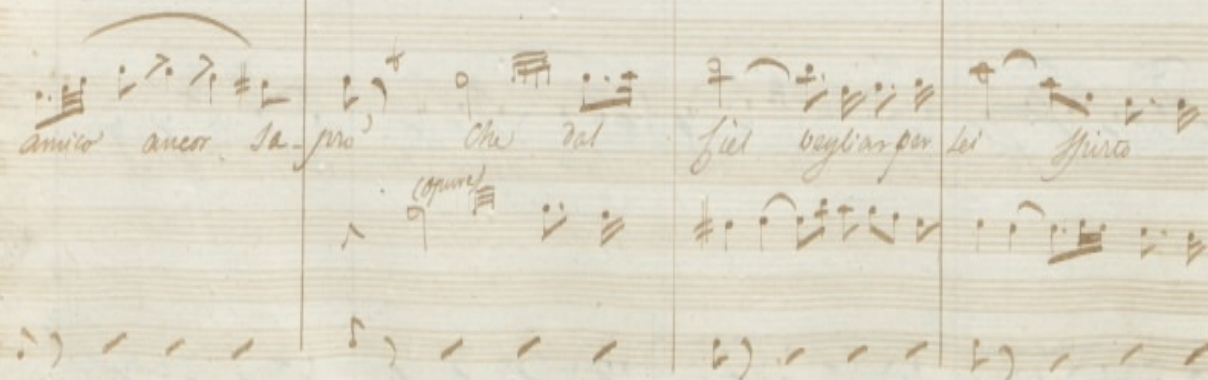 amico ancor sa-prò Che dal Ciel veglia per lei spirto
(opure)